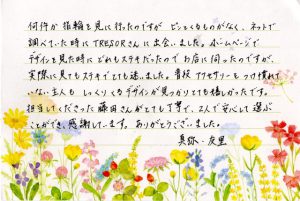 何件か指輪を見に行ったのですが ピンとくるものがなく、ネットで
調べていた時に TRESORさんに出会いました。ホームページで
デザインを見た時にどれもステキだったので お店に伺ったのですが、
実際に見てもステキでとても迷いました。普段 アクセサリーもつけ慣れて
いない主人も しっくりくるデザインが見つかりとても嬉しかったです。
担当してくださった 藤田さんがとても丁寧で、2人で安心して選ぶ
ことができ、感謝しています。ありがとうございました。
真弥・友里